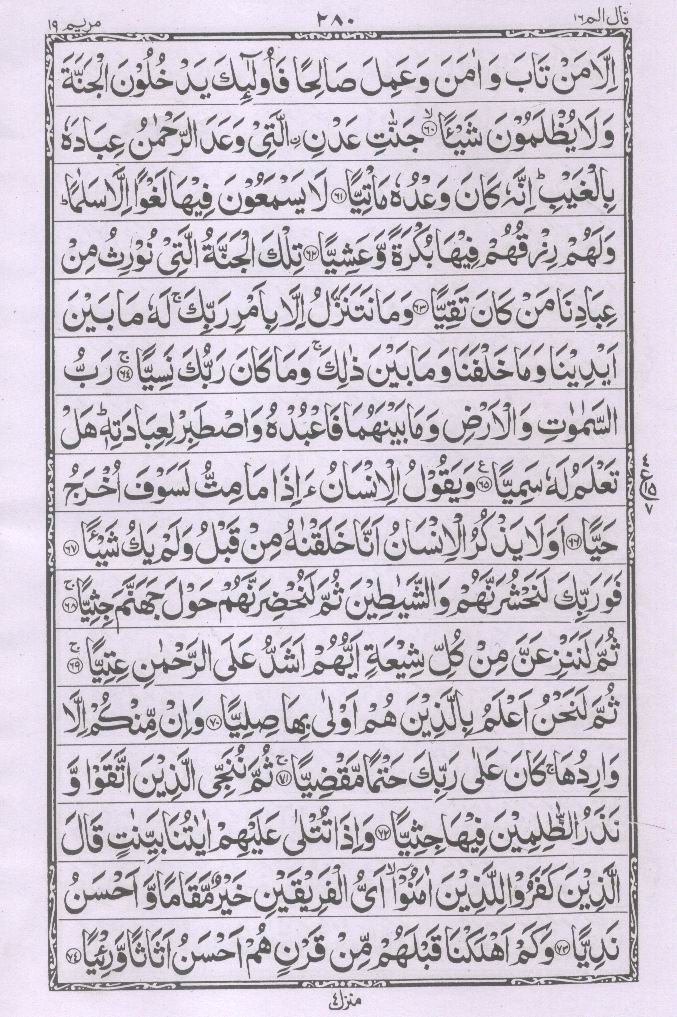 قال الم ١٦
٢٨٠
مريم ١٩
اِلَّا مَنْ تَابَ وَ اٰمَنَ وَعَمِلَ صَالِحًا فَاُولٰٓئِكَ يَدْخُلُوْنَ الْجَنَّةَ
وَلَا يُظْلَمُوْنَ شَيْـًٔا ۙ‏﴿۶۰﴾ جَنّٰتِ عَدْنِ ۨ الَّتِىْ وَعَدَ الرَّحْمٰنُ عِبَادَهٗ
بِالْغَيْبِ ؕ اِنَّهٗ كَانَ وَعْدُهٗ مَاْتِيًّا ﴿۶۱﴾ لَا يَسْمَعُوْنَ فِيْهَا لَغْوًا اِلَّا سَلٰمًا ؕ
وَلَهُمْ رِزْقُهُمْ فِيْهَا بُكْرَةً وَّعَشِيًّا ﴿۶۲﴾ تِلْكَ الْجَنَّةُ الَّتِىْ نُوْرِثُ مِنْ
عِبَادِنَا مَنْ كَانَ تَقِيًّا ﴿۶۳﴾ وَمَا نَتَنَزَّلُ اِلَّا بِاَمْرِ رَبِّكَ ۚ لَهٗ مَا بَيْنَ
اَيْدِيْنَا وَمَا خَلْفَنَا وَمَا بَيْنَ ذٰلِكَ ۚ وَمَا كَانَ رَبُّكَ نَسِيًّا ۚ﴿۶۴﴾ رَبُّ
السَّمٰوٰتِ وَالْاَرْضِ وَمَا بَيْنَهُمَا فَاعْبُدْهُ وَاصْطَبِرْ لِعِبَادَتِهٖ ؕ هَلْ
تَعْلَمُ لَهٗ سَمِيًّا ﴿۶۵﴾ ع وَيَقُوْلُ الْاِنْسَانُ ءَاِذَا مَا مِتُّ لَسَوْفَ اُخْرَجُ
٤
١٥
٧
حَيًّا ﴿۶۶﴾ اَوَلَا يَذْكُرُ الْاِنْسَانُ اَنَّا خَلَقْنٰهُ مِنْ قَبْلُ وَلَمْ يَكُ شَيْـًٔا ﴿۶۷﴾
فَوَرَبِّكَ لَنَحْشُرَنَّهُمْ وَالشَّيٰطِيْنَ ثُمَّ لَنُحْضِرَنَّهُمْ حَوْلَ جَهَنَّمَ جِثِيًّا ۚ﴿۶۸﴾
ثُمَّ لَنَنْزِعَنَّ مِنْ كُلِّ شِيْعَةٍ اَيُّهُمْ اَشَدُّ عَلَى الرَّحْمٰنِ عِتِيًّا ۚ﴿۶۹﴾
ثُمَّ لَنَحْنُ اَعْلَمُ بِالَّذِيْنَ هُمْ اَوْلٰى بِهَا صِلِيًّا ﴿۷۰﴾ وَاِنْ مِّنْكُمْ اِلَّا
وَارِدُهَا ۚ كَانَ عَلٰى رَبِّكَ حَتْمًا مَّقْضِيًّا ۚ﴿۷۱﴾ ثُمَّ نُنَجِّى الَّذِيْنَ اتَّقَوْا وَّ
نَذَرُ الظّٰلِمِيْنَ فِيْهَا جِثِيًّا ﴿۷۲﴾ وَاِذَا تُتْلٰى عَلَيْهِمْ اٰيٰتُنَا بَيِّنٰتٍ قَالَ
الَّذِيْنَ كَفَرُوْا لِلَّذِيْنَ اٰمَنُوْٓا ۙ اَىُّ الْفَرِيْقَيْنِ خَيْرٌ مَّقَامًا وَّ اَحْسَنُ
نَدِيًّا ﴿۷۳﴾ وَكَمْ اَهْلَكْنَا قَبْلَهُمْ مِّنْ قَرْنٍ هُمْ اَحْسَنُ اَثَاثًا وَّرِءْيًا ﴿۷۴﴾
منزل ٤